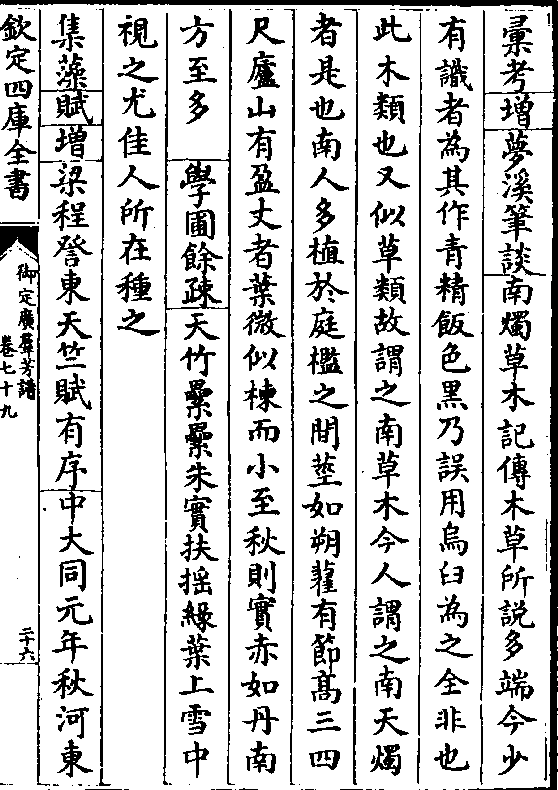 彚考增夢溪筆談南燭草木記傳木草所説多端今少
有識者為其作青精飯色黑乃誤用烏臼為之全非也
此木類也又似草類故謂之南草木今人謂之南天燭
者是也南人多植於庭檻之間莖如朔藋有節髙三四
尺廬山有盈丈者葉微似楝而小至秋則實赤如丹南
方至多　學圃餘疎天竹纍纍朱實扶揺緑葉上雪中
視之尤佳人所在種之
集藻賦增梁程詧東天竺賦有序中大同元年秋河東
欽定四庫全書
御定廣羣芳譜
卷七十九
二十六